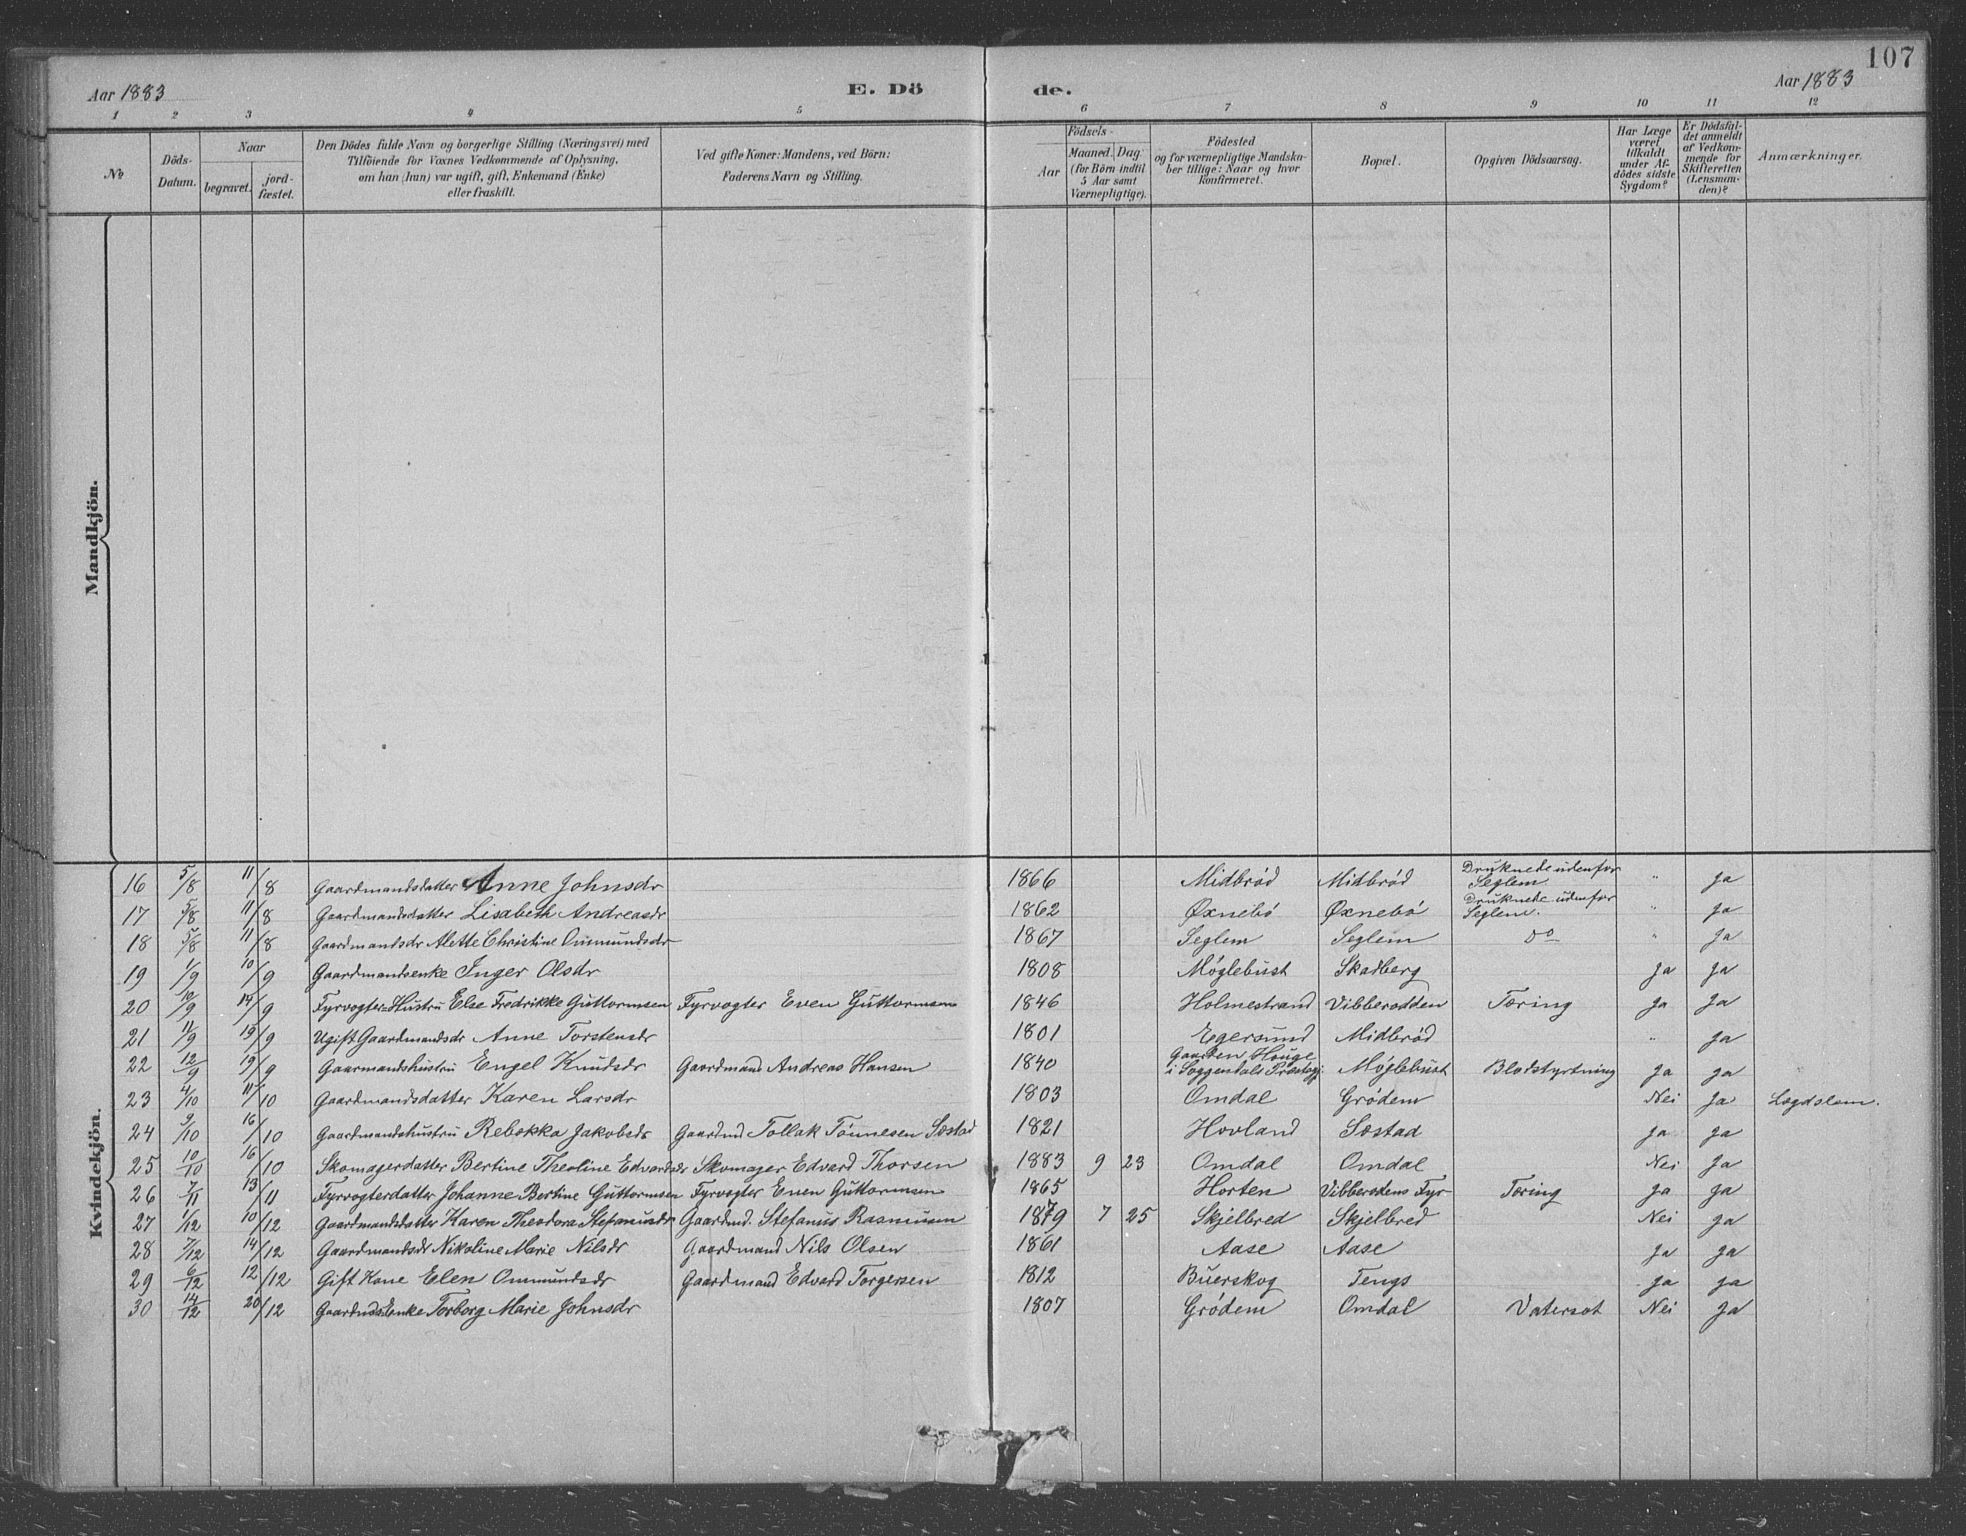 107
Aar 1883 E. Dö de. Aar 1883
1 2 3 4 5 6 7 8 9 10 11 12
No
Döds-
Datum.
Naar
begravet.
jord-
fæstet.
Den Dödes fulde Navn og borgerlige Stilling (Næringsvei) med
Tilföiende for Voxnes Vedkommende af Oplysning,
om han (hun) var ugift, gift, Enkemand (Enke)
eller fraskilt.
Ved gifte Koner: Mandens, ved Börn:
Faderens Navn og Stilling.
Födsels-
Aar
Maaned. Dag.
(for Börn indtil
5 Aar samt
Værnepligtige).
Födested
og for værnepligtige Mandska-
ber tillige: Naar og hvor
konfirmeret.
Bopæl.
Opgiven Dödsaarsag.
Har Læge
været
tilkaldt
under Af-
dödes sidste
Sygdom?
Er Dödsfal-
det anmeldt
af Vedkom-
mende for
Skifteretten
(Lensman-
den)?
Anmærkninger.
Mandkjön.
Kvindekjön.
16 5/8 11/8 Gaardmandsdatter Anne Johnsdr 1866 Midbrød Midbrød Druknede udenfor Seglem " Ja
17 5/8 11/8 Gaardmandsdatter Lisabeth Andreasdr 1862 Øxnebø Øxnebø Druknede udenfor Seglem. " Ja
18 5/8 11/8 Gaardmandsdr Alette Christine Ommundsdr 1867 Seglem Seglem do " Ja
19 1/9 10/9 Gaardmandsenke Inger Olsdr 1808 Møglebust Skadberg Ja Ja
20 10/9 14/9 Fyrvogter-Hustru Else Fredrikke Guttormsen Fyrvogter Even Guttormsen 1846 Holmestrand Vibberodden Tæring Ja Ja
21 11/9 19/9 Ugift Gaardmandsdr Anne Torstensdr 1801 Egersund Midbrød " Ja
22 12/9 19/9 Gaarmandshustru Engel Knudsdr Gaardmand Andreas Hansen 1840 Gaarden Houge i Soggendals Præstegj. Møglebust Blodstyrtning Ja Ja
23 4/10 11/10 Gaardmandsdatter Karen Larsdr 1803 Omdal Grødem Nei Ja Lægdslem.
24 9/10 16/10 Gaardmandshustru Rebekka Jakobsdr Gaardmd Tollak Tønnesen Sæstad 1821 Hovland Sæstad Ja Ja
25 10/10 16/10 Skomagerdatter Bertine Theoline Edvardsdr Skomager Edvard Thorsen 1883 9 23 Omdal Omdal Nei Ja
26 7/11 13/11 Fyrvogterdatter Johanne Bertine Guttormsen Fyrvogter Even Guttormsen 1865 Horten Vibberodens Fyr Tæring Ja Ja
27 1/12 10/12 Gaardmandsdatter Karen Theodora Stefanusdr Gaardmd. Stefanus Rasmusen 1879 7 25 Skjelbred Skjelbred Nei Ja
28 7/12 14/12 Gaardmandsdr Nikoline Marie Nilsdr Gaardmand Nils Olsen 1861 Aase Aase Ja Ja
29 6/12 12/12 Gift Kone Elen Ommundsdr Gaardmand Edvard Torgersen 1812 Buerskog Tengs Ja Ja
30 14/12 20/12 Gaardmdsenke Torborg Marie Johnsdr 1807 Grødem Omdal Vatersot Nei Ja